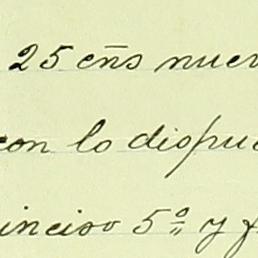 25 cños nuev
con lo dispue
inciso 5º y f